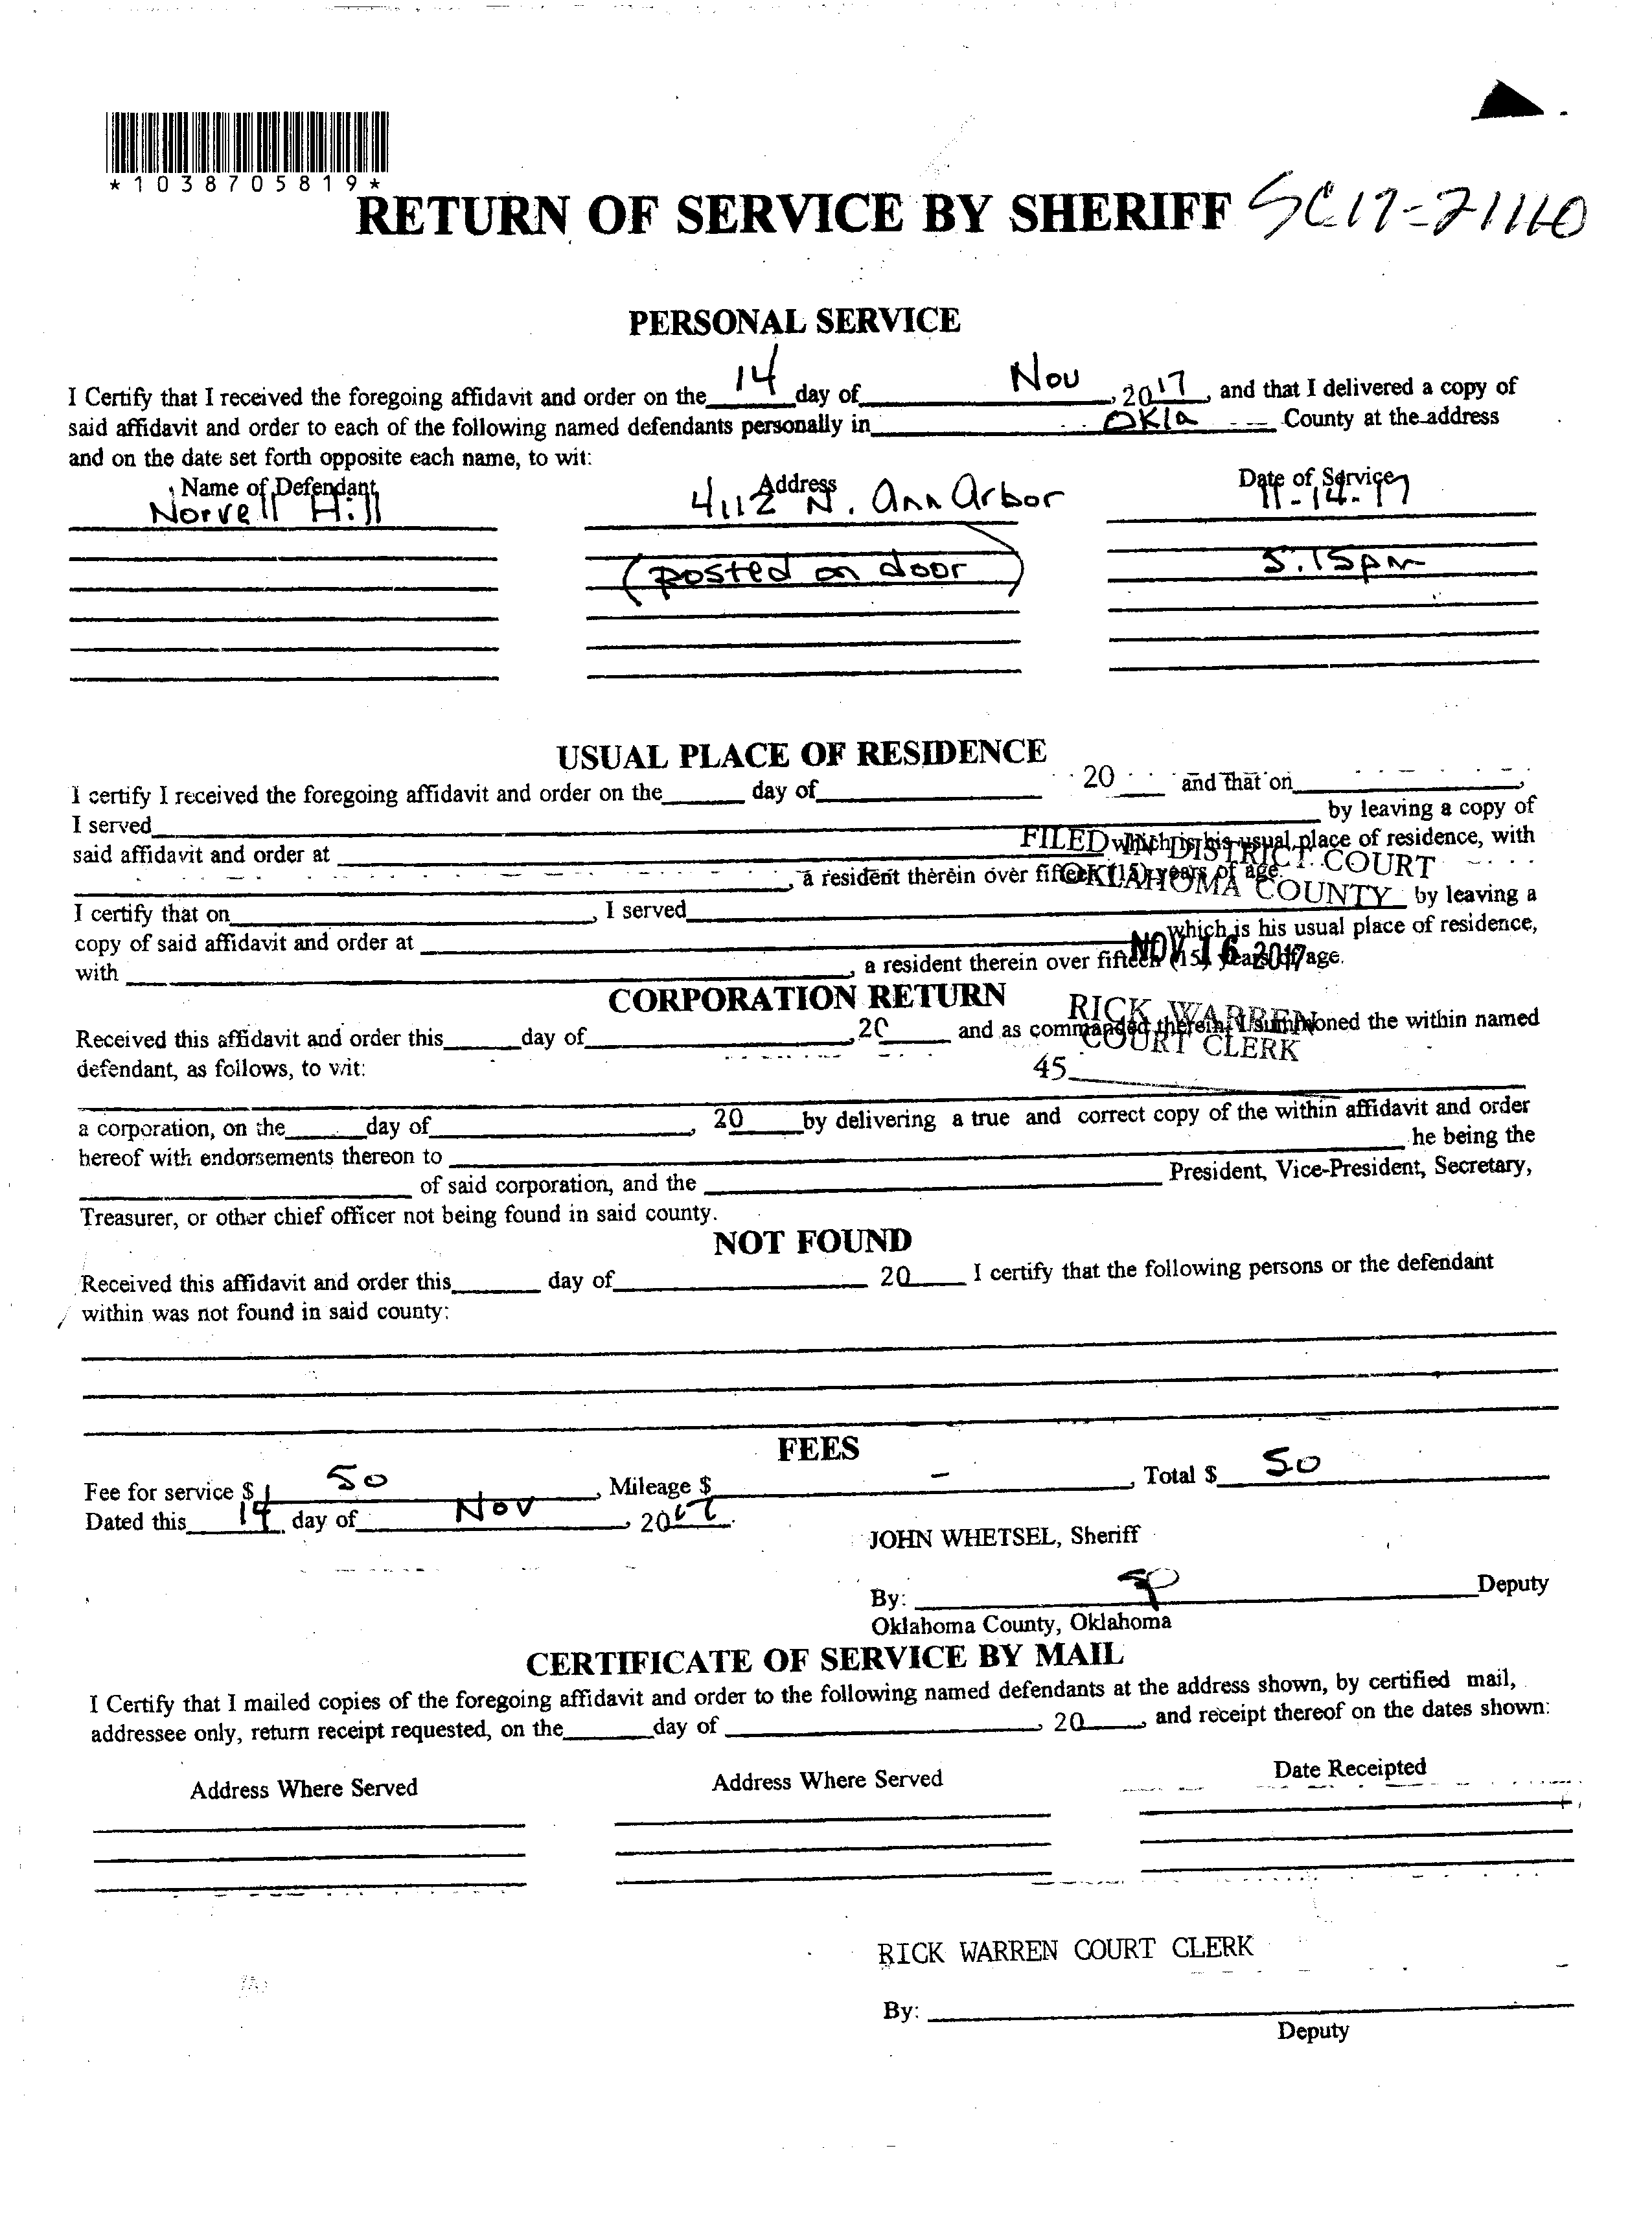 *1038705819*
RETURN OF SERVICE BY SHERIFF
PERSONAL SERVICE
I Certify that I received the foregoing affidavit and order on the 14 day of Nov, 2017, and that I delivered a copy of
said affidavit and order to each of the following named defendants personally in Okla County at the address
and on the date set forth opposite each name, to wit:
Name of Defendant Address Date of Service
Norvell Hill 4112 N. Ann Arbor 11-14-17
(posted on door) 5:15pm
USUAL PLACE OF RESIDENCE
I certify I received the foregoing affidavit and order on the ______ day of ______ 20 ____ and that on ______,
I served ______ by leaving a copy of
said affidavit and order at ______ which is his usual place of residence, with
______, a resident therein over fifteen (15) years of age.
FILED IN DISTRICT COURT
OKLAHOMA COUNTY
I certify that on ______, I served ______ by leaving a
copy of said affidavit and order at ______ which is his usual place of residence,
with ______, a resident therein over fifteen (15) years of age.
NOV 16 2017
CORPORATION RETURN
RICK WARREN
COURT CLERK
Received this affidavit and order this ______ day of ______, 20____ and as commanded therein, I summoned the within named
defendant, as follows, to wit:
45
a corporation, on the ______ day of ______, 20____ by delivering a true and correct copy of the within affidavit and order
hereof with endorsements thereon to ______ he being the
______ of said corporation, and the ______ President, Vice-President, Secretary,
Treasurer, or other chief officer not being found in said county.
NOT FOUND
Received this affidavit and order this ______ day of ______ 20____ I certify that the following persons or the defendant
within was not found in said county:
FEES
Fee for service $ 50, Mileage $ –, Total $ 50
Dated this 14 day of Nov, 2017.
JOHN WHETSEL, Sheriff
By: ______ Deputy
Oklahoma County, Oklahoma
CERTIFICATE OF SERVICE BY MAIL
I Certify that I mailed copies of the foregoing affidavit and order to the following named defendants at the address shown, by certified mail,
addressee only, return receipt requested, on the ______ day of ______, 20____, and receipt thereof on the dates shown:
Address Where Served Address Where Served Date Receipted
RICK WARREN COURT CLERK
By: ______
Deputy